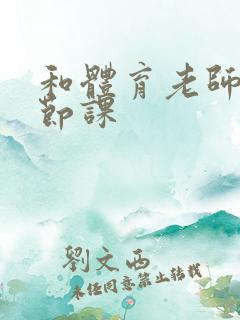 和體育老師
節課
劉文西
未經同意禁止轉載